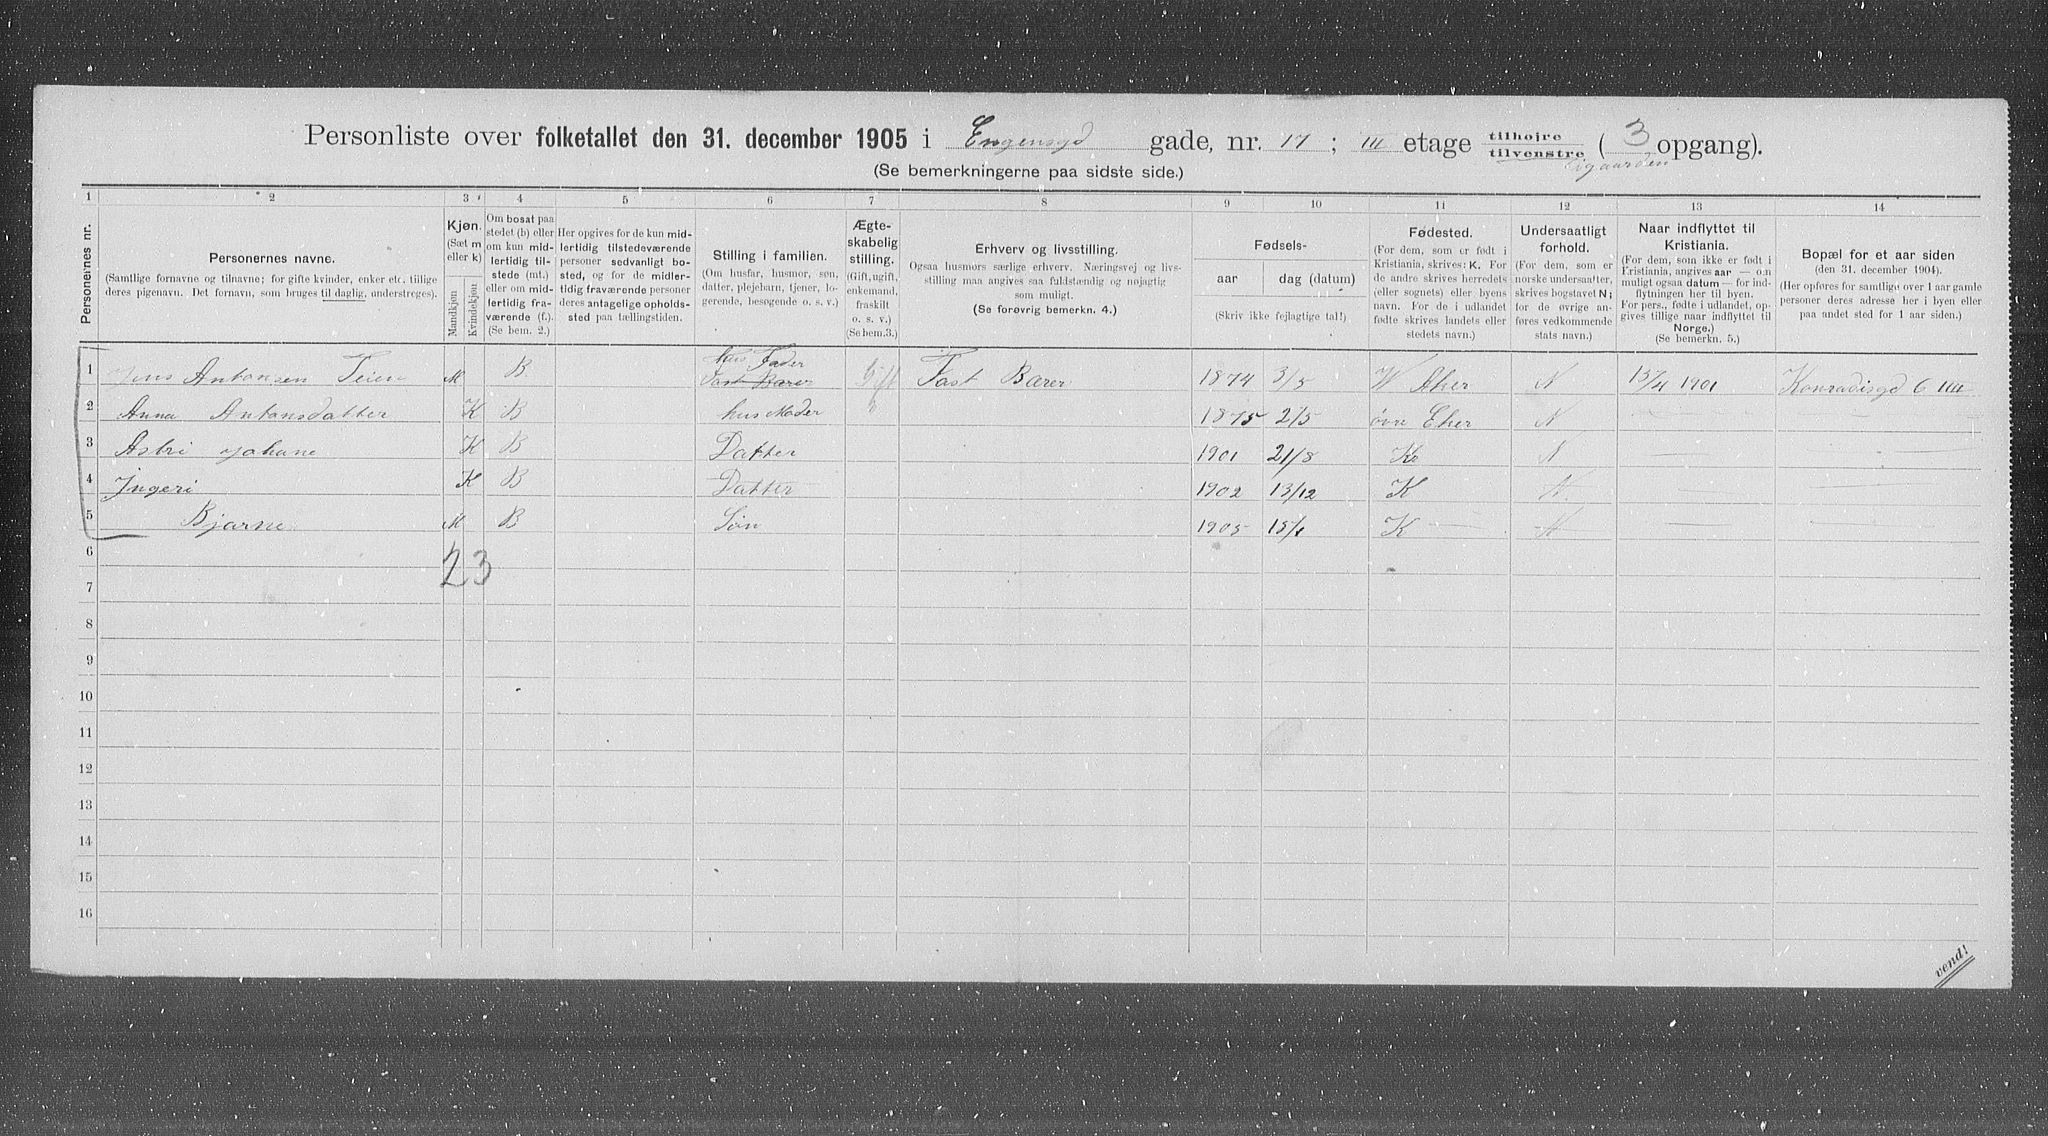 Personliste over folketallet den 31. december 1905 i Engensgd gade, nr. 17 ; III etage tilhøire tilvenstre ( 3 opgang).
(Se bemerkningerne paa sidste side.)
1 2 3 4 5 6 7 8 9 10 11 12 13 14
Personernes nr.
Personernes navne.
(Samtlige fornavne og tilnavne; for gifte kvinder, enker etc. tillige
deres pigenavn. Det fornavn, som bruges til daglig, understreges).
Kjøn.
(Sæt m
eller k)
Mandkjøn
Kvindekjøn
Om bosat paa
stedet (b) eller
om kun mid-
lertidig til-
stede (mt.)
eller om mid-
lertidig fra-
værende (f.).
(Se bem. 2.)
Her opgives for de kun mid-
lertidig tilstedeværende
personer sedvanligt bo-
sted, og for de midler-
tidig fraværende personer
deres antagelige opholds-
sted paa tællingstiden.
Stilling i familien.
(Om husfar, husmor, søn,
datter, plejebarn, tjener, lo-
gerende, besøgende o. s. v.)
Ægte-
skabelig
stilling.
(Gift, ugift,
enkemand,
fraskilt
o. s. v.)
(Se bem. 3.)
Erhverv og livsstilling.
Ogsaa husmors særlige erhverv. Næringsvej og livs-
stilling maa angives saa fuldstændig og nøjagtig
som muligt.
(Se forøvrig bemerkn. 4.)
Fødsels-
aar dag (datum)
(Skriv ikke fejlagtige tal!)
Fødested.
(For dem, som er født i
Kristiania, skrives: K. For
de andre skrives herredets
(eller sognets) eller byens
navn. For de i udlandet
fødte skrives landets eller
stedets navn.)
Undersaatligt
forhold.
(For dem, som er
norske undersaatter,
skrives bogstavet N;
for de øvrige an-
føres vedkommende
stats navn.)
Naar indflyttet til
Kristiania.
(For dem, som ikke er født i
Kristiania, angives aar — o: om
muligt ogsaa datum — for ind-
flytningen her til byen.
For pers., fødte i udlandet, op-
gives tillige naar indflyttet til
Norge.)
(Se bemerkn. 5.)
Bopæl for et aar siden
(den 31. december 1904).
(Her opføres for samtlige over 1 aar gamle
personer deres adresse her i byen eller
paa andet sted for 1 aar siden.)
1 Jens Antonsen Teien M B hus Fader Fast Bærer Gift Fast Bærer 1874 3/5 W Aker N 15/4 1901 Konradisgd 6 IIII
2 Anna Antonsdatter K B hus Moder " 1875 2/5 øvre Eker N
3 Astri Johane K B Datter 1901 21/8 Kr N
4 Ingeri K B Datter 1902 13/12 K N
5 Bjarne M B Søn 1905 K N
2 3
6
7
8
9
10
11
12
13
14
15
16
vend!